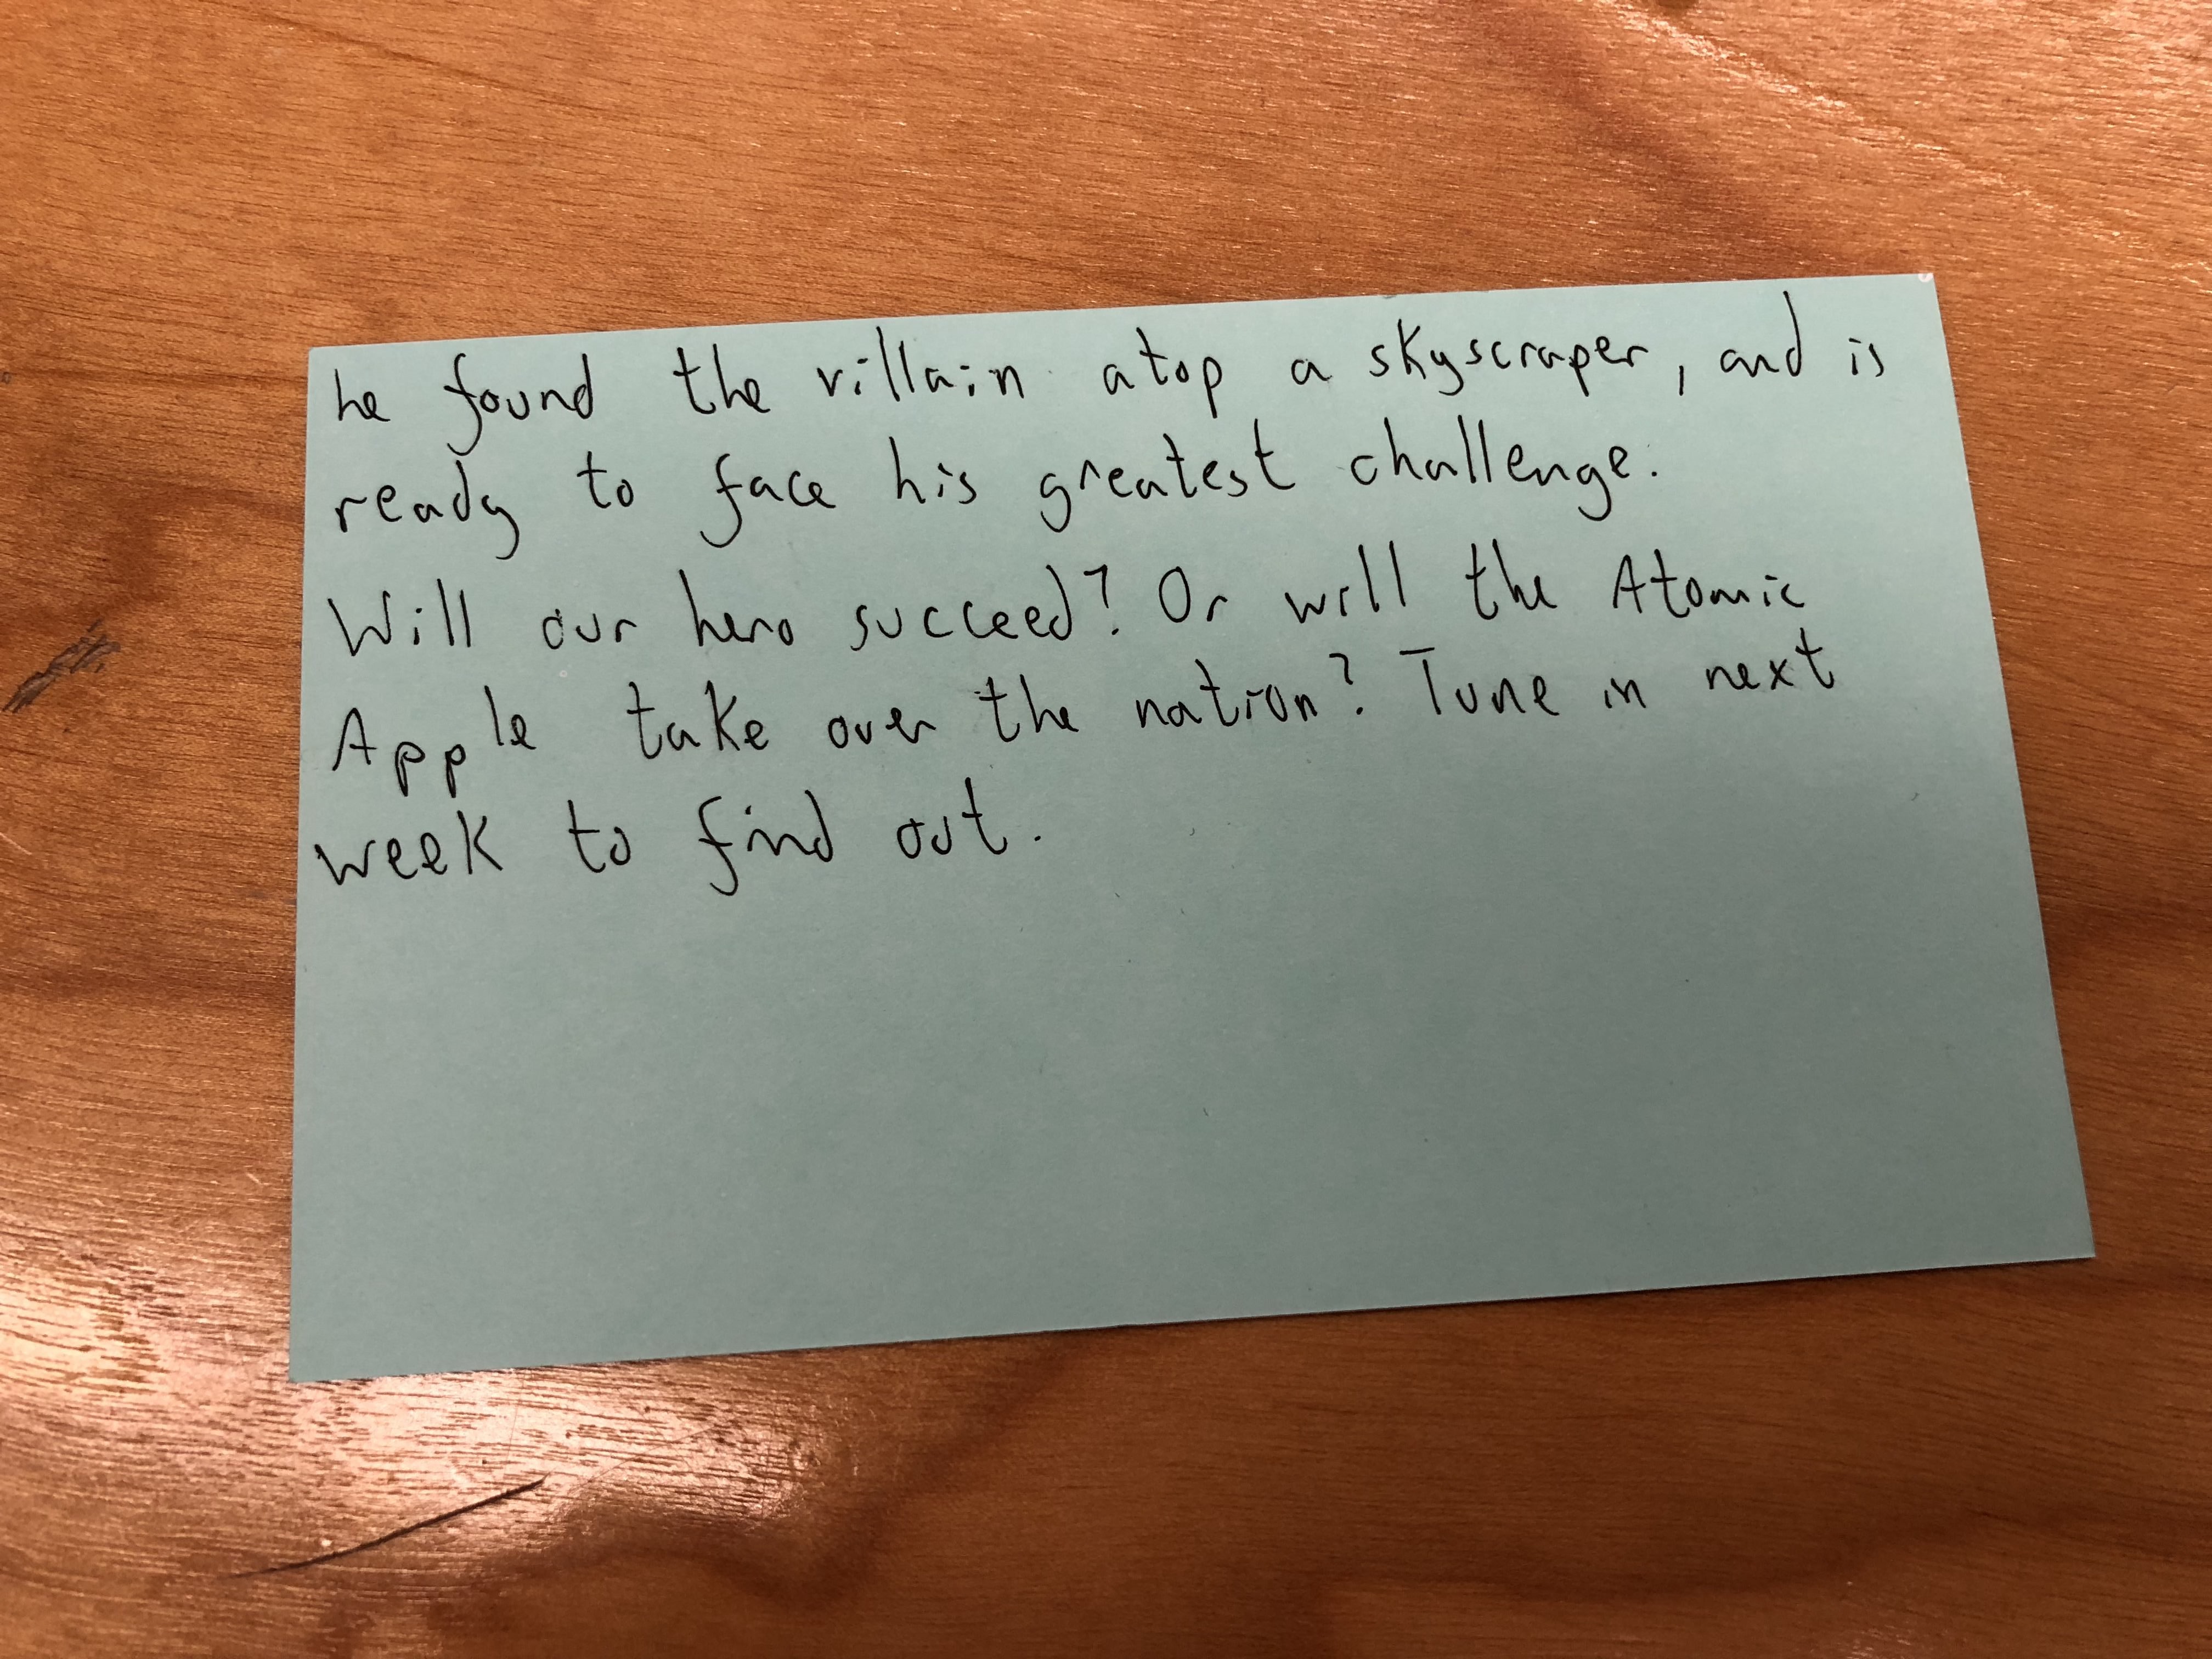 he found the villain atop a skyscraper, and is
ready to face his greatest challenge.
Will our hero succeed? Or will the Atomic
Apple take over the nation? Tune in next
week to find out.